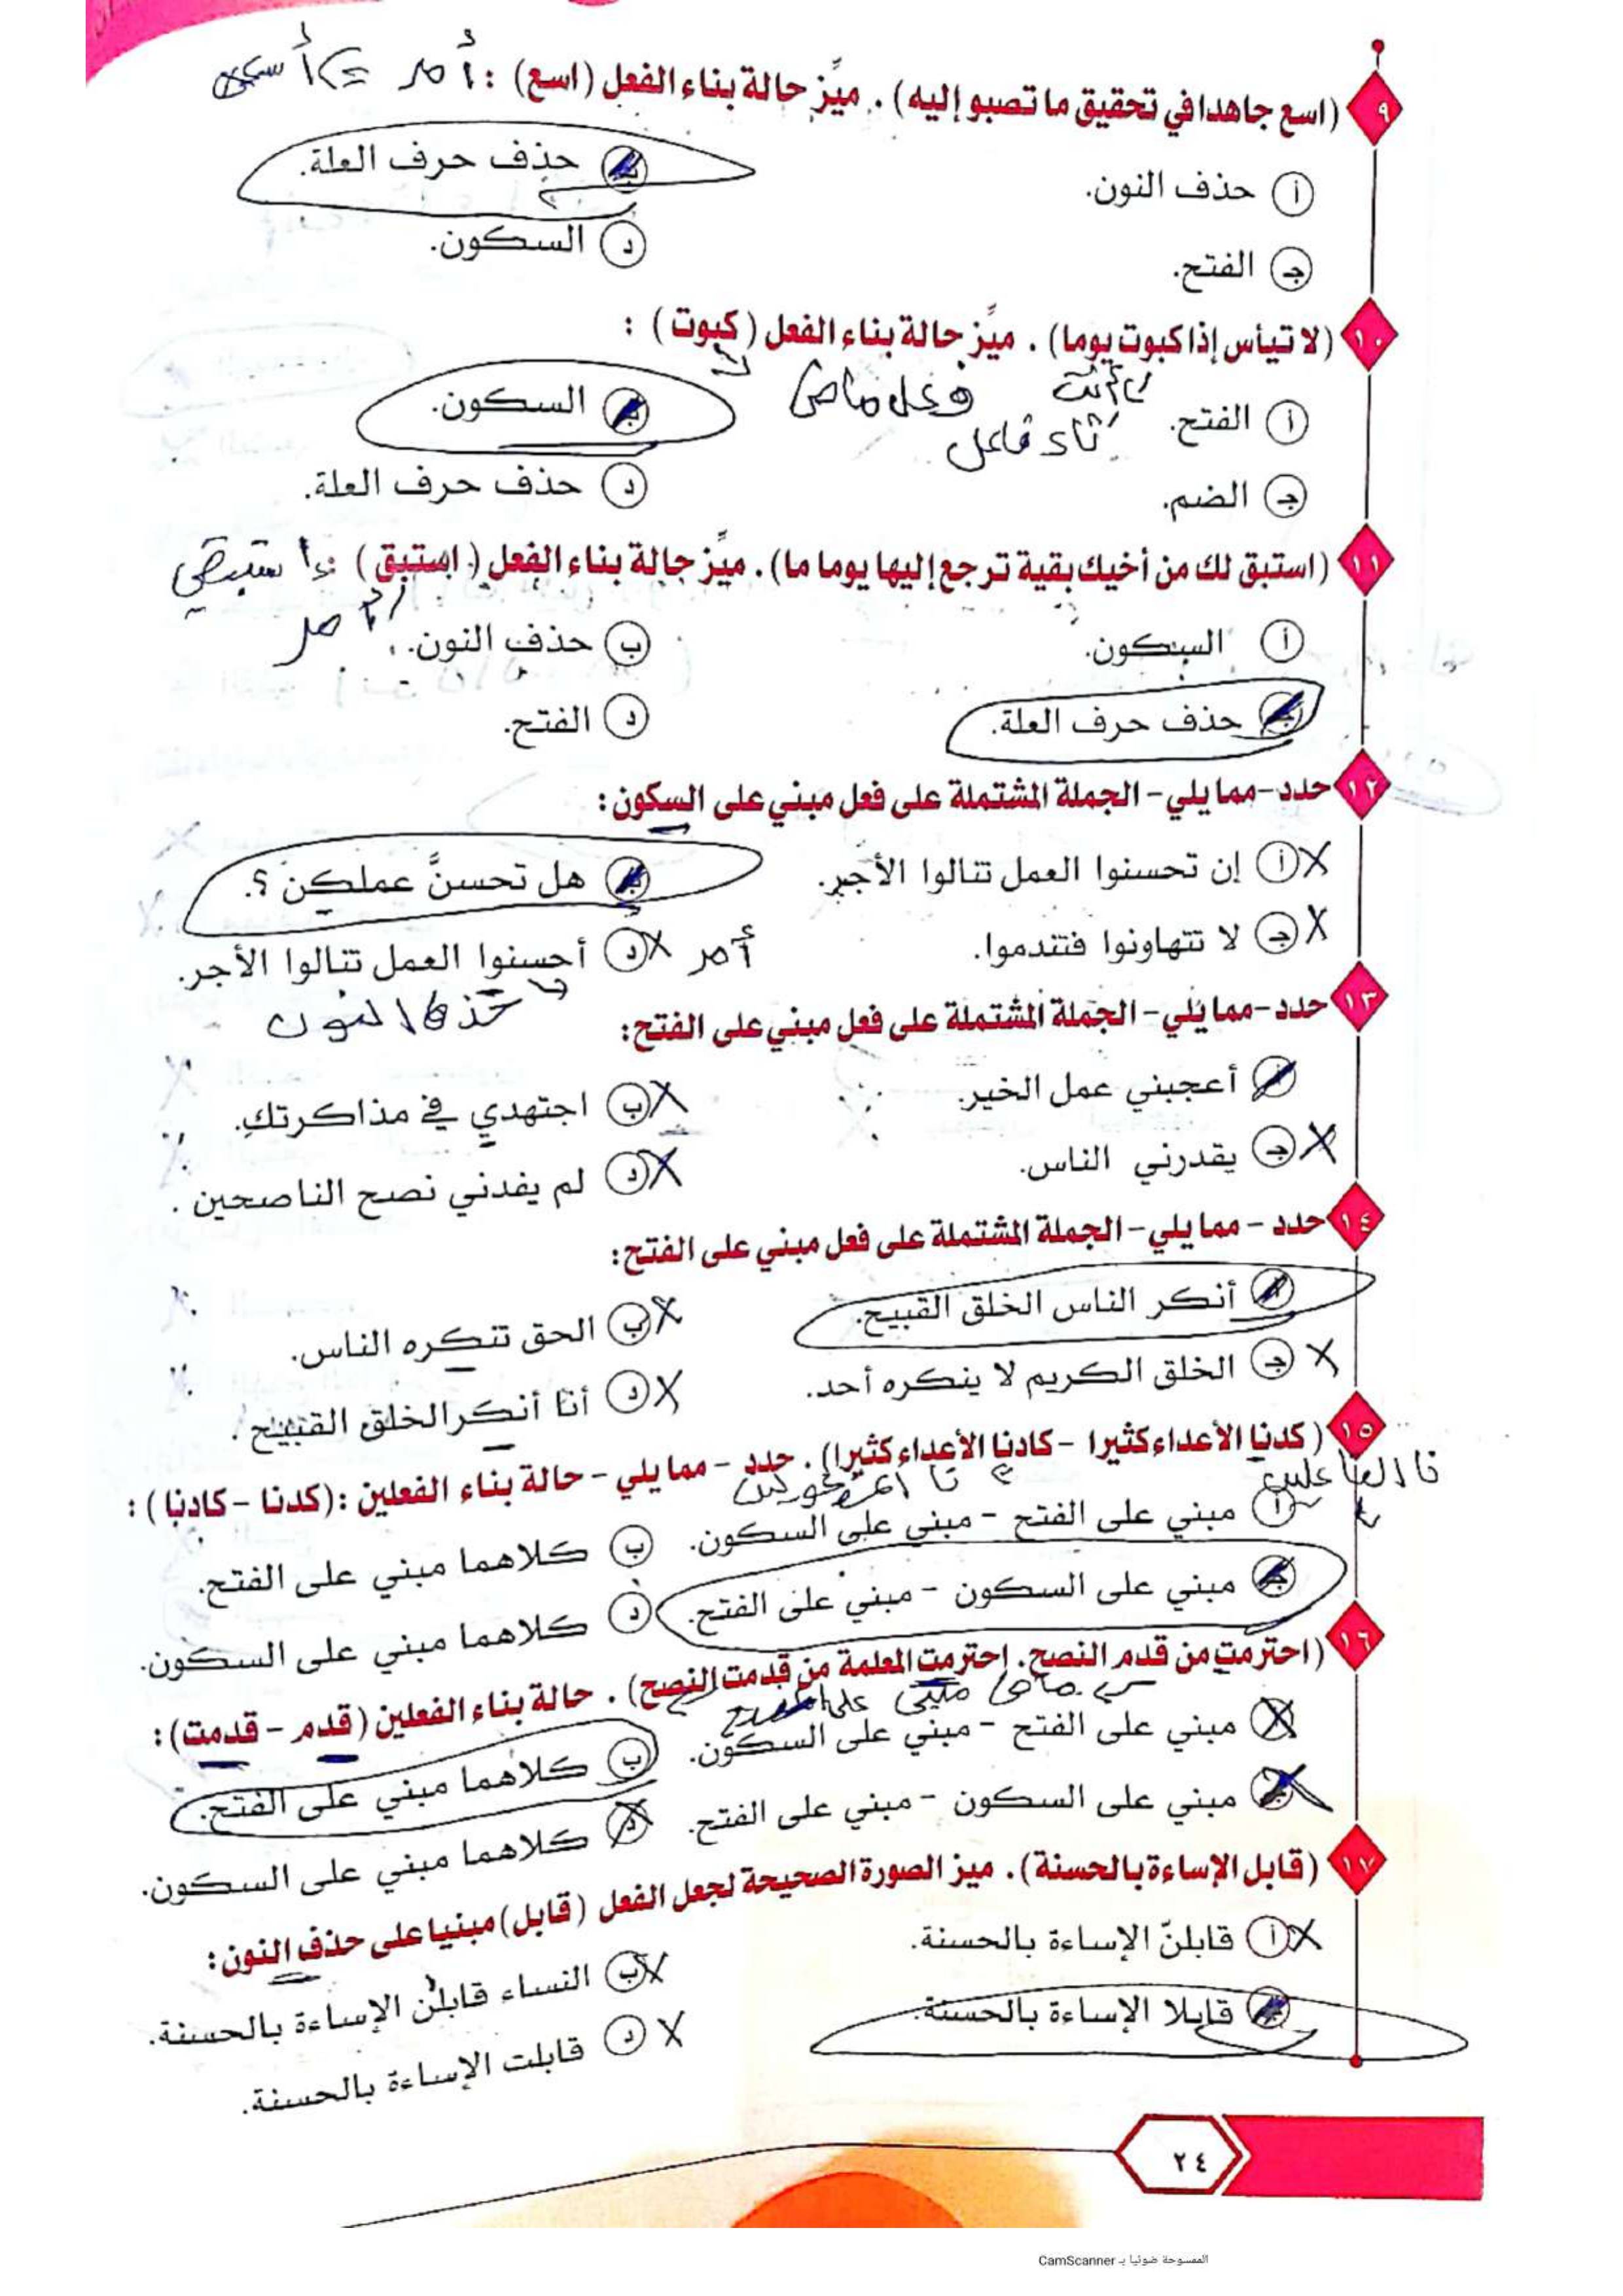 ٩ (اسع جاهدا في تحقيق ما تصبو إليه) . ميِّز حالة بناء الفعل (اسع) : أمر
أ حذف النون.
ب حذف حرف العلة.
جـ الفتح.
د السكون.
١٠ (لا تيأس إذا كبوت يوما) . ميِّز حالة بناء الفعل (كبوت) :
فعل ماض
تاء فاعل
أ الفتح.
ب السكون.
جـ الضم.
د حذف حرف العلة.
١١ (استبق لك من أخيك بقية ترجع إليها يوما ما) . ميِّز حالة بناء الفعل (استبق) : استبقي
أمر
أ السكون.
ب حذف النون.
جـ حذف حرف العلة.
د الفتح.
١٢ حدد - مما يلي - الجملة المشتملة على فعل مبني على السكون:
أ إن تحسنوا العمل تنالوا الأجر.
ب هل تحسنَّ عملكن ؟.
جـ لا تتهاونوا فتندموا.
د أحسنوا العمل تنالوا الأجر.
أمر
حذف النون
١٣ حدد - مما يلي - الجملة المشتملة على فعل مبني على الفتح:
أ أعجبني عمل الخير.
ب اجتهدي في مذاكرتكِ.
جـ يقدرني الناس.
د لم يفدني نصح الناصحين .
١٤ حدد - مما يلي - الجملة المشتملة على فعل مبني على الفتح:
أ أنكر الناس الخلق القبيح.
ب الحق تنكره الناس.
جـ الخلق الكريم لا ينكره أحد.
د أنا أنكر الخلق القبيح .
١٥ (كدنا الأعداء كثيرا - كادنا الأعداء كثيرا) . حدد - مما يلي - حالة بناء الفعلين : (كدنا - كادنا) :
نا الفاعلين
أ مبني على الفتح - مبني على السكون.
ب كلاهما مبني على الفتح.
جـ مبني على السكون - مبني على الفتح.
د كلاهما مبني على السكون.
١٦ (احترمت من قدم النصح. احترمت المعلمة من قدمت النصح) . حالة بناء الفعلين (قدم - قدمت) :
ماض مبني على الفتح
أ مبني على الفتح - مبني على السكون.
ب كلاهما مبني على الفتح.
جـ مبني على السكون - مبني على الفتح.
د كلاهما مبني على السكون.
١٧ (قابل الإساءة بالحسنة) . ميز الصورة الصحيحة لجعل الفعل (قابل) مبنيا على حذف النون :
أ قابلنّ الإساءة بالحسنة.
ب النساء قابلن الإساءة بالحسنة.
جـ قابلا الإساءة بالحسنة.
د قابلت الإساءة بالحسنة.
٢٤
الممسوحة ضوئيا بـ CamScanner